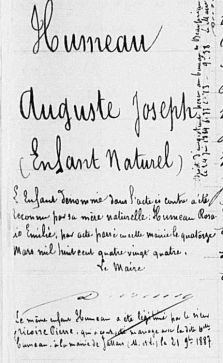 Humeau
Auguste Joseph
(Enfant Naturel)
L'Enfant dénommé dans l'acte ci contre a été
reconnu par sa mère naturelle: Humeau Rosa-
lie Emilie, par acte passé en cette mairie le quatorze
Mars mil huit cent quatre vingt quatre.
Le Maire
Le même enfant Humeau a été légitimé par le sieur
Pierre, qui a contracté mariage avec la dite
Humeau à la mairie de (M. et L.) le 21 9bre 1887